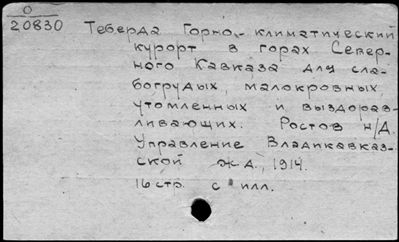 О
20830
Теберда Горно-климатический
курорт в горах Север-
ного Кавказа для сла-
богрудых, малокровных,
утомленных и выздорав-
ливающих. Ростов н/Д.
Управление Владикавказ-
ской ж.д., 1914.
16 стр. с илл.